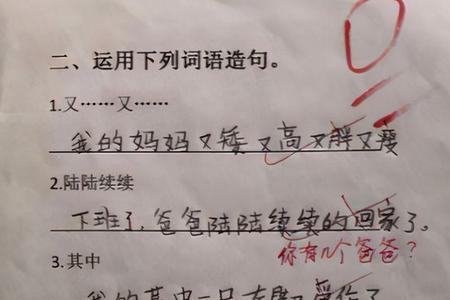 二、运用下列词语造句。
1.又……又……
我的妈妈又矮又高又胖又瘦
2.陆陆续续
下班了,爸爸陆陆续续的回家了。
你有几个爸爸?
3.其中
我的其中一只左脚又受伤了